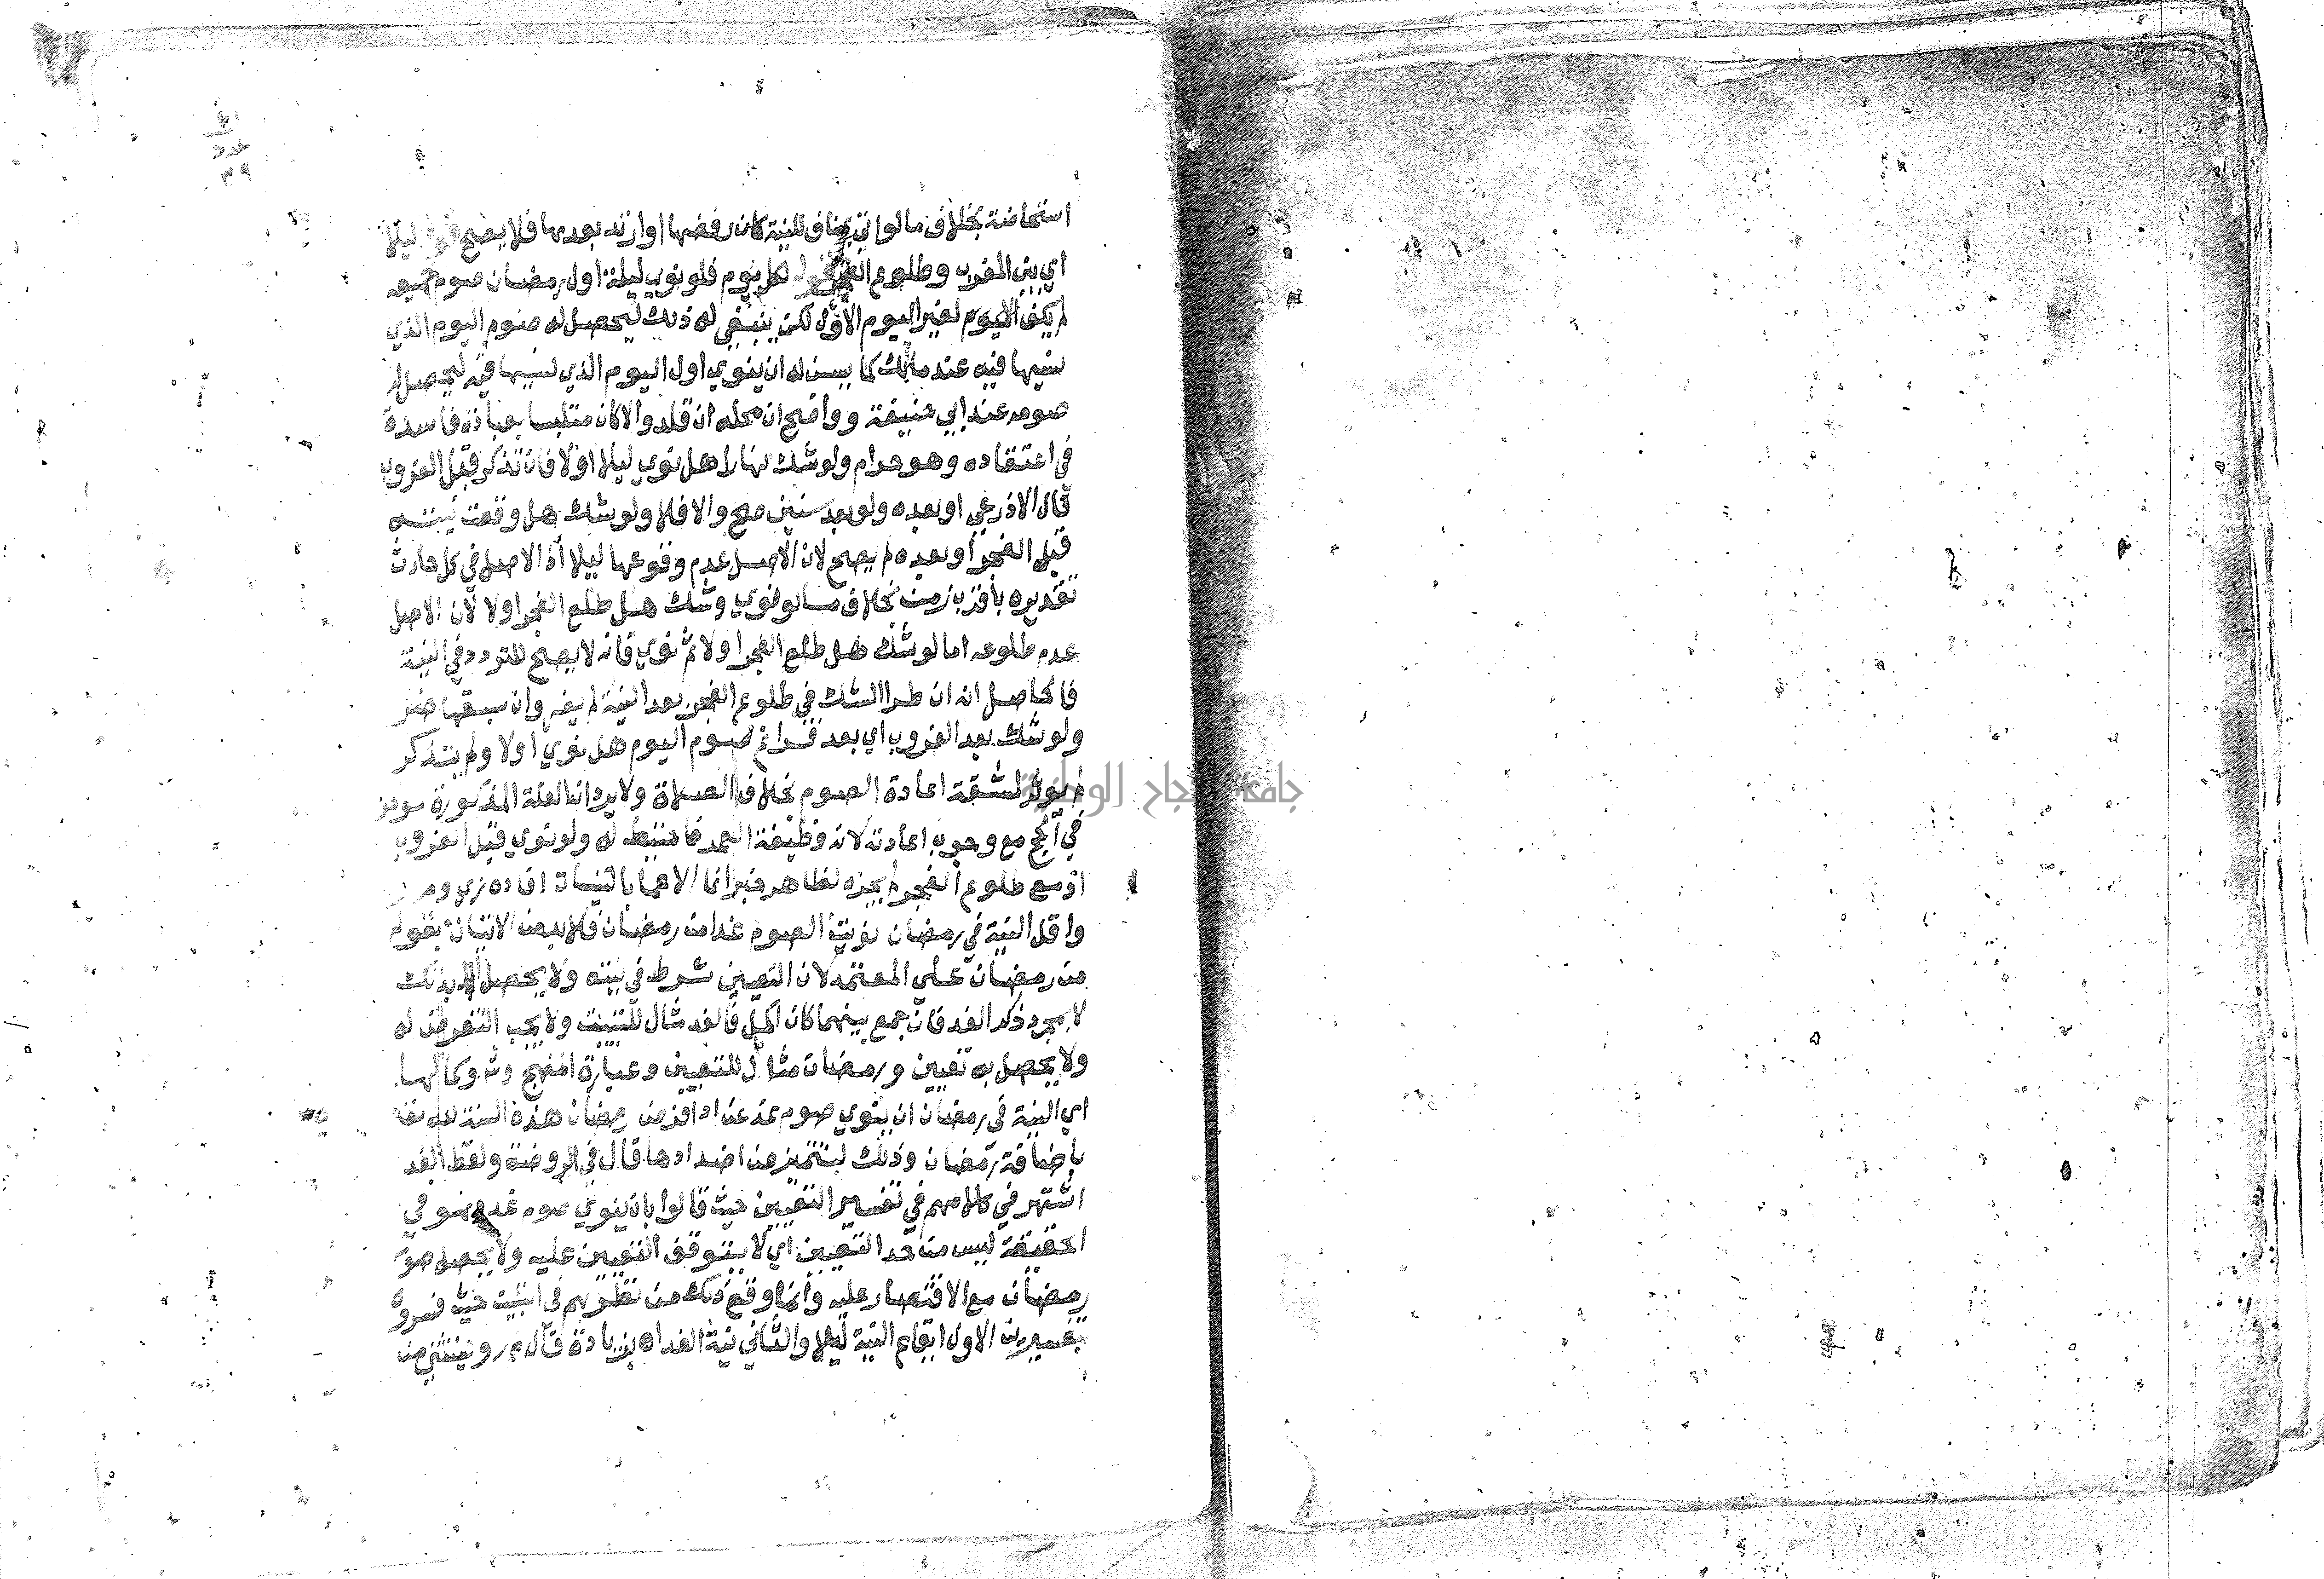 عدد
٣٩
استحاضة بخلاف ما لو اتي بمناف للنية كان رفضها او ارتد بعدها فلا يصح ليلا
اي بين المغرب وطلوع الفجر لكل يوم فلو نوي ليلة اول رمضان صوم جميعه
لم يكف لغير اليوم الاول لكن ينبغي له ذلك ليحصل له صوم اليوم الذي
نسيها فيه عند مالك كما يسن له ان ينوي اول اليوم الذي نسيها فيه ليحصل له
صومه عند ابي حنيفة وواضح ان محله ان قلد والا كان متلبسا بعبادة فاسدة
في اعتقاده وهو حرام ولو شك نهارا هل نوي ليلا اولا فان تذكر قبل الغروب
قال الاذرعي او بعده ولو بعد سنين صح والا فلا ولو شك هل وقعت نيته
قبل الفجر او بعده لم يصح لان الاصل عدم وقوعها ليلا اذ الاصل في كل حادث
تقديره باقرب زمن بخلاف ما لو نوي وشك هل طلع الفجر اولا لان الاصل
عدم طلوعه اما لو شك هل طلع الفجر اولا ثم نوي فانه لا يصح للتردد في النية
فالحاصل انه ان طرا الشك في طلوع الفجر بعد النية لم يضر وان سبقها ضر
ولو شك بعد الغروب اي بعد فراغ صوم اليوم هل نوي اولا ولم يتذكر
لم يوثر لمشقة اعادة الصوم بخلاف الصلاة ولا يرد ان العلة المذكورة موجودة
في الحج مع وجوب اعادته لانه وظيفة العمر فاحتيط له ولو نوي قبل الغروب
او مع طلوع الفجر لم يجزه لظاهر خبر انما الاعمال بالنيات افاده زي و م ر
واقل النية في رمضان نويت الصوم غدا من رمضان فلا بد من الاتيان بقوله
من رمضان علي المعتمد لان التعيين شرط في نيته ولا يحصل الا بذلك
لا بمجرد ذكر الغد فان جمع بينهما كان اكمل فالغد مثال للتبييت ولا يجب التعرض له
ولا يحصل به تعيين ورمضان مثال للتعيين وعبارة المنهج وش وكمالها
اي النية في رمضان ان ينوي صوم غد عن ادا فرض رمضان هذه السنة لله تعا
باضافة رمضان وذلك لتتميز عن اضدادها قال في الروضة ولفظ الغد
اشتهر في كلامهم في تفسير التعيين حيث قالوا بان ينوي صوم غد وهو في
الحقيقة ليس من حد التعيين اي لا يتوقف التعيين عليه ولا يحصل صوم
رمضان مع الاقتصار عليه وانما وقع ذلك من نظرهم في التبييت حيث فسروه
بتفسيرين الاول ايقاع النية ليلا والثاني نية الغد اه بزيادة قال م ر ويستثني من
جامعة النجاح الوطنية